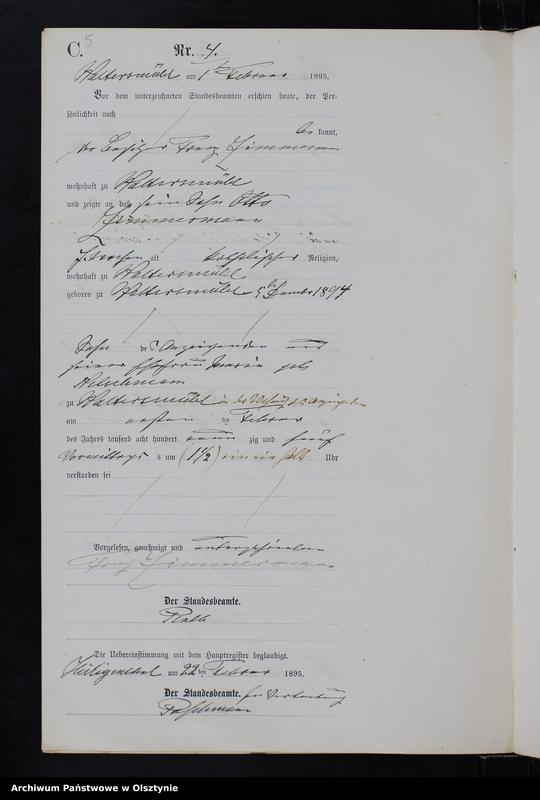 C. 5
Nr. 4.
Waltersmühl am 1ten Februar 1895.
Vor dem unterzeichneten Standesbeamten erschien heute, der Per-
sönlichkeit nach
be kannt,
der Besitzer Franz Zimmermann
wohnhaft zu Waltersmühl
und zeigte an, daß sein Sohn Otto
Zimmermann
alt katholischer Religion,
wohnhaft zu Waltersmühl
geboren zu Waltersmühl 1894
Sohn des Anzeigenden und
seiner Ehefrau Maria geb
zu Waltersmühl in der Wohnung des Anzeigenden
am ersten ten Februar
des Jahres tausend acht hundert neun zig und fünf
Vormittags um (1 1/2) ein ein halb Uhr
verstorben sei
Vorgelesen, genehmigt und unterschrieben
Franz Zimmermann
Der Standesbeamte.
Die Uebereinstimmung mit dem Hauptregister beglaubigt.
Heiligenthal am 22 ten Februar 1895.
Der Standesbeamte. in Vertretung
Archiwum Państwowe w Olsztynie